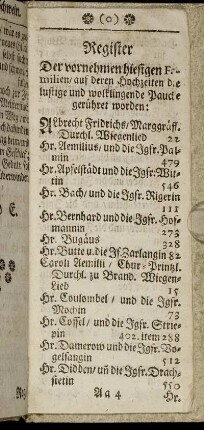 (o)
Register
Der vornehmen hiesigen Fa-
milien/ auf deren Hochzeiten die
lustige und wolklingende Paucke
gerühret worden:
Albrecht Fridrichs/ Marggräff.
Durchl. Wiegenlied 22
Hr. Aemilius/ und die Jgfr. Pal-
min 479
Hr. Apfelstädt und die Jgfr. Wit-
tin 546
Hr. Bach/ und die Jgfr. Rigerin
111
Hr. Bernhard und die Jgfr. Hof-
mannin 273
Hr. Bugäus 328
Hr. Butte u. die Jf. Zarlangin 82
Caroli Aemilii/ Chur-Printzl.
Durchl. zu Brand. Wiegen-
Lied 15
Hr. Coulombel/ und die Jgfr.
Mochin 73
Hr. Cossel/ und die Jgfr. Strie-
pin 402. item 288
Hr. Damerow und die Jgfr. Vo-
gelsangin 512
Hr. Didden/ uñ die Jgfr. Drach-
stetin 550
Aa 4 Hr.